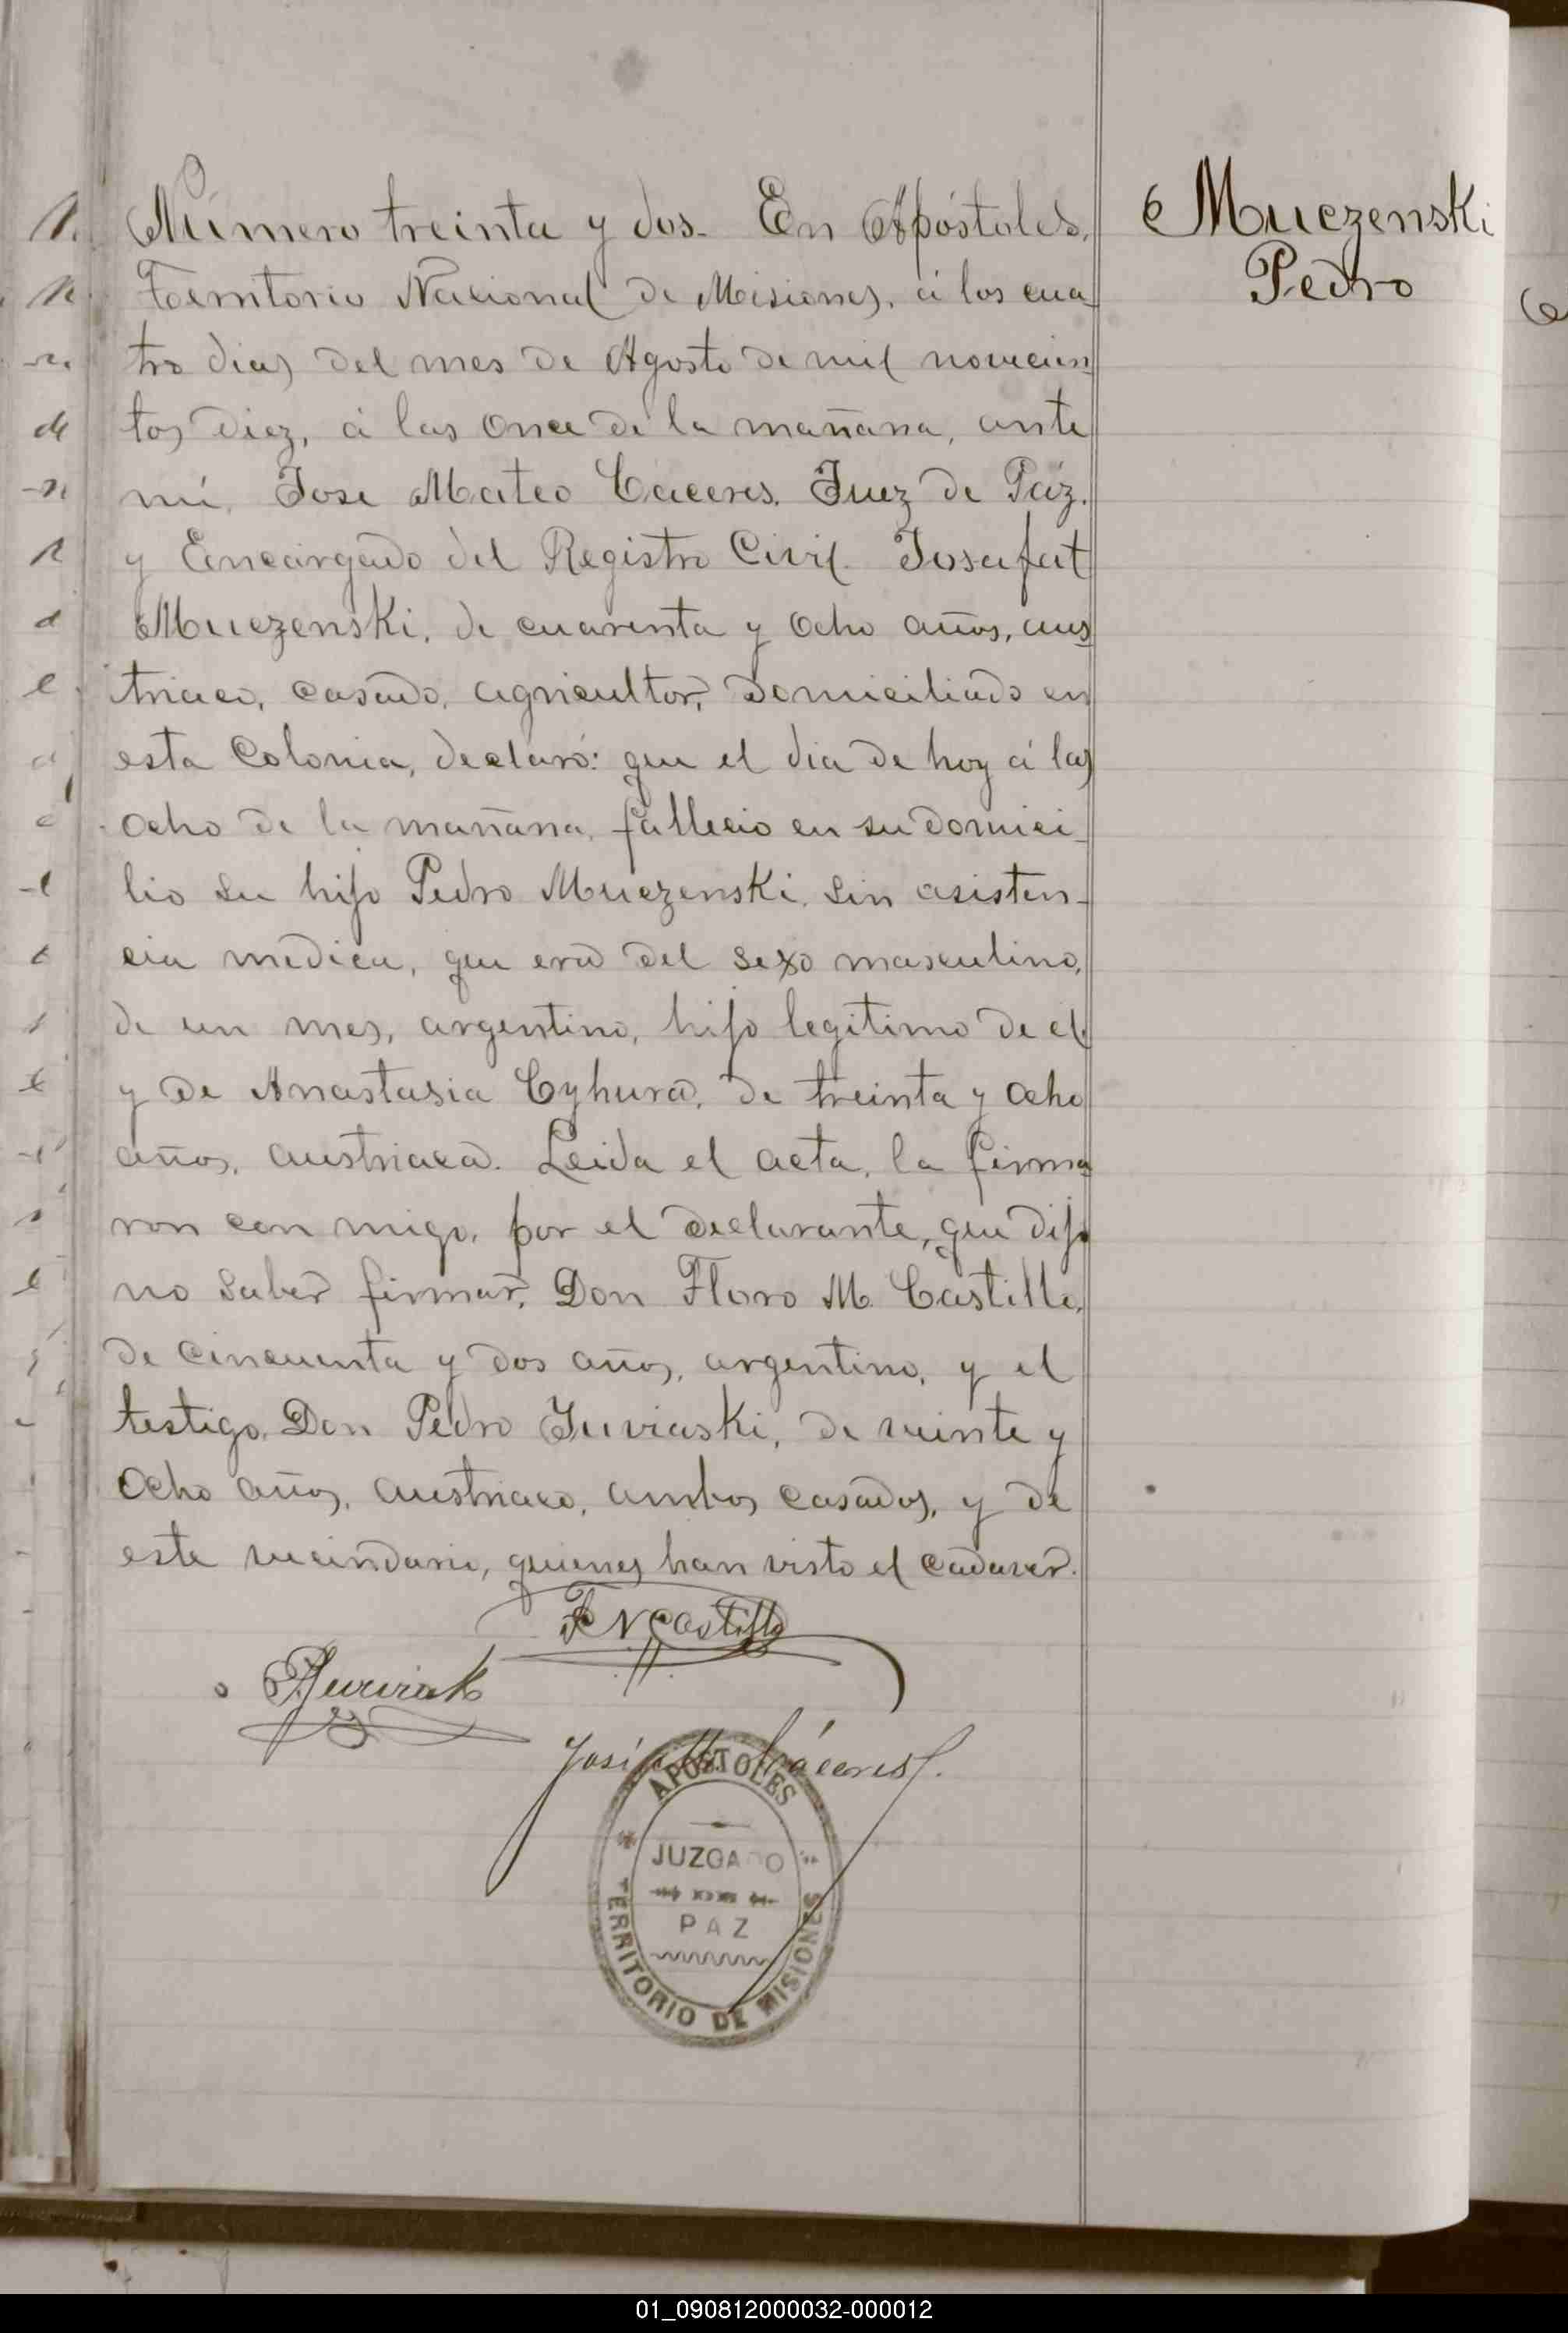 Número treinta y dos. En Apóstoles,
Territorio Nacional de Misiones, á los cua
tro dias del mes de Agosto de mil novecien
tos diez, á las once de la mañana, ante
mí, Jose Mateo Caceres, Juez de Páz.
y Encargado del Registro Civil. Josafat
Muczenski, de cuarenta y ocho años, aus
triaco, casado, agricultor, domiciliado en
esta Colonia, declaró: que el dia de hoy á las
ocho de la mañana, fallecio en su domici
lio su hijo Pedro Muczenski, sin asisten-
cia medica, que era del sexo masculino,
de un mes, argentino, hijo legitimo de el
y de Anastasia Cyhura, de treinta y ocho
años, austriaca. Leida el acta, la firma
ron con migo, por el declarante, que dijo
no saber firmar, Don Floro M. Castillo,
de cincuenta y dos años, argentino, y el
testigo, Don Pedro Juviaski, de veinte y
ocho años, austriaco, ambos casados, y de
este vecindario, quienes han visto el cadaver.
Muczenski
Pedro
F N Castillo
José M. Cáceres
APOSTOLES
JUZGADO
PAZ
TERRITORIO DE MISIONES
01_090812000032-000012